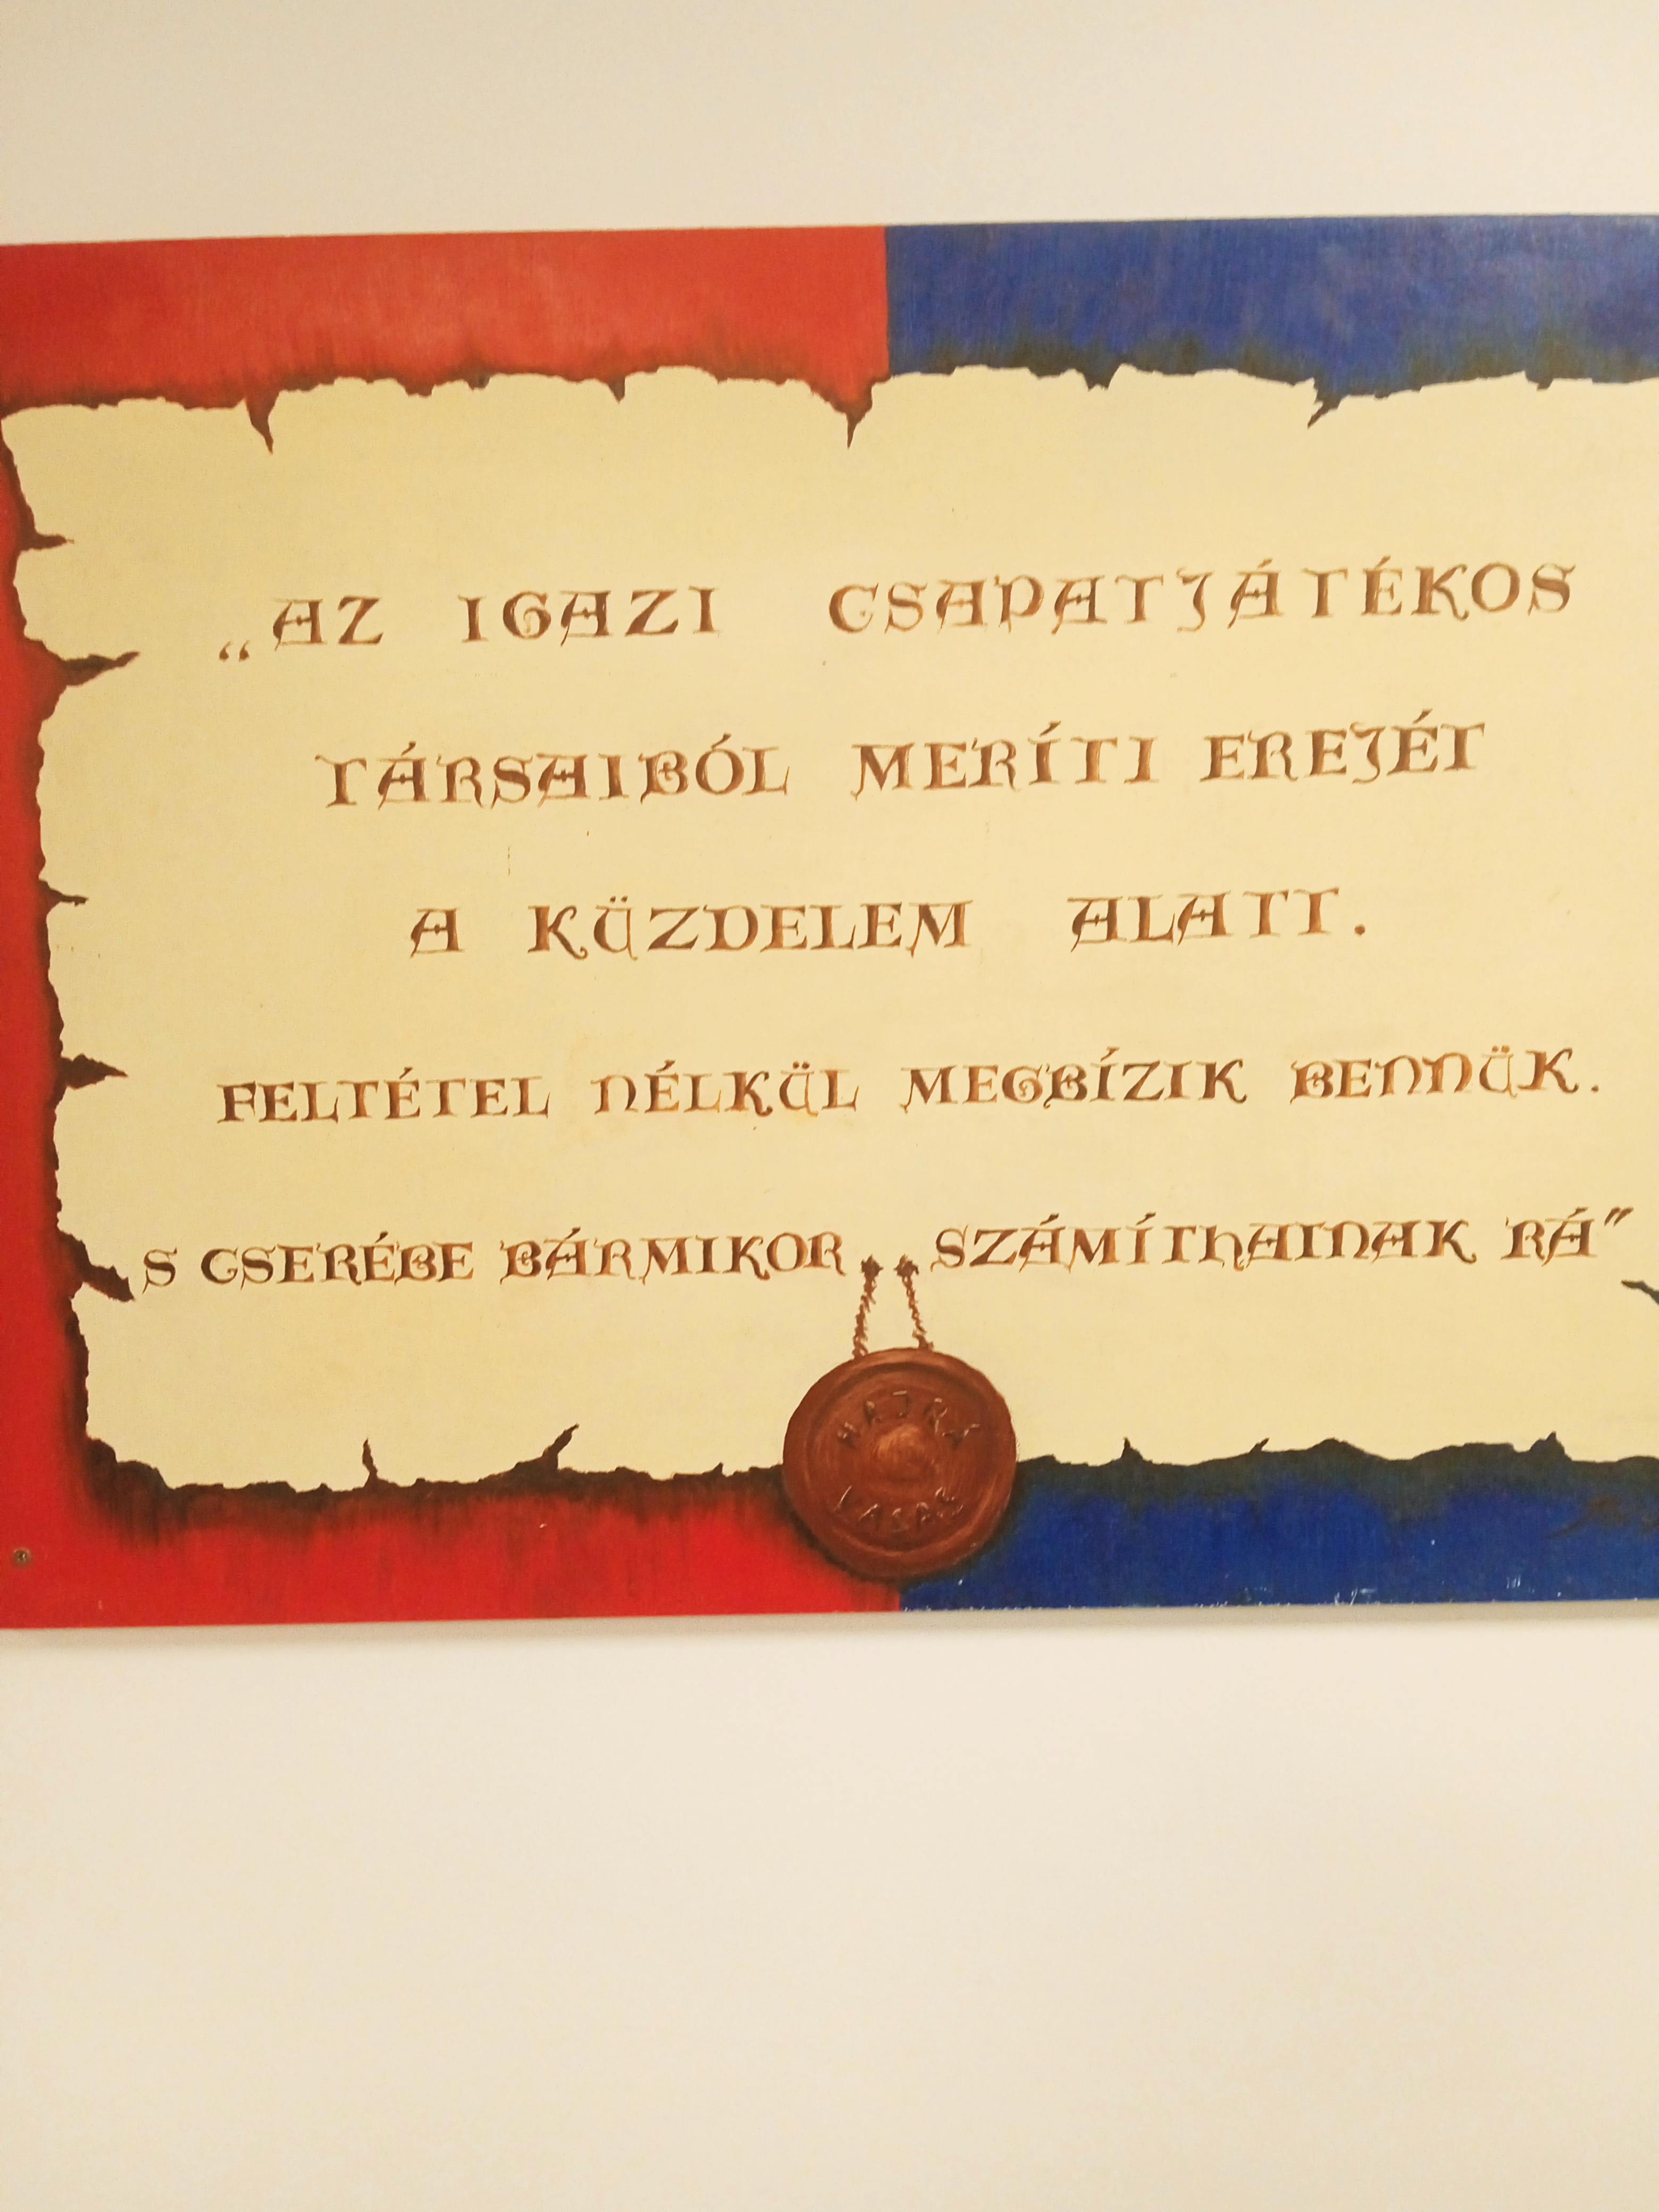 „AZ IGAZI CSAPATJÁTÉKOS
TÁRSAIBÓL MERÍTI EREJÉT
A KÜZDELEM ALATT.
FELTÉTEL NÉLKÜL MEGBÍZIK BENNÜK.
S CSERÉBE BÁRMIKOR SZÁMÍTHATNAK RÁ”
HAJRÁ
VASAS